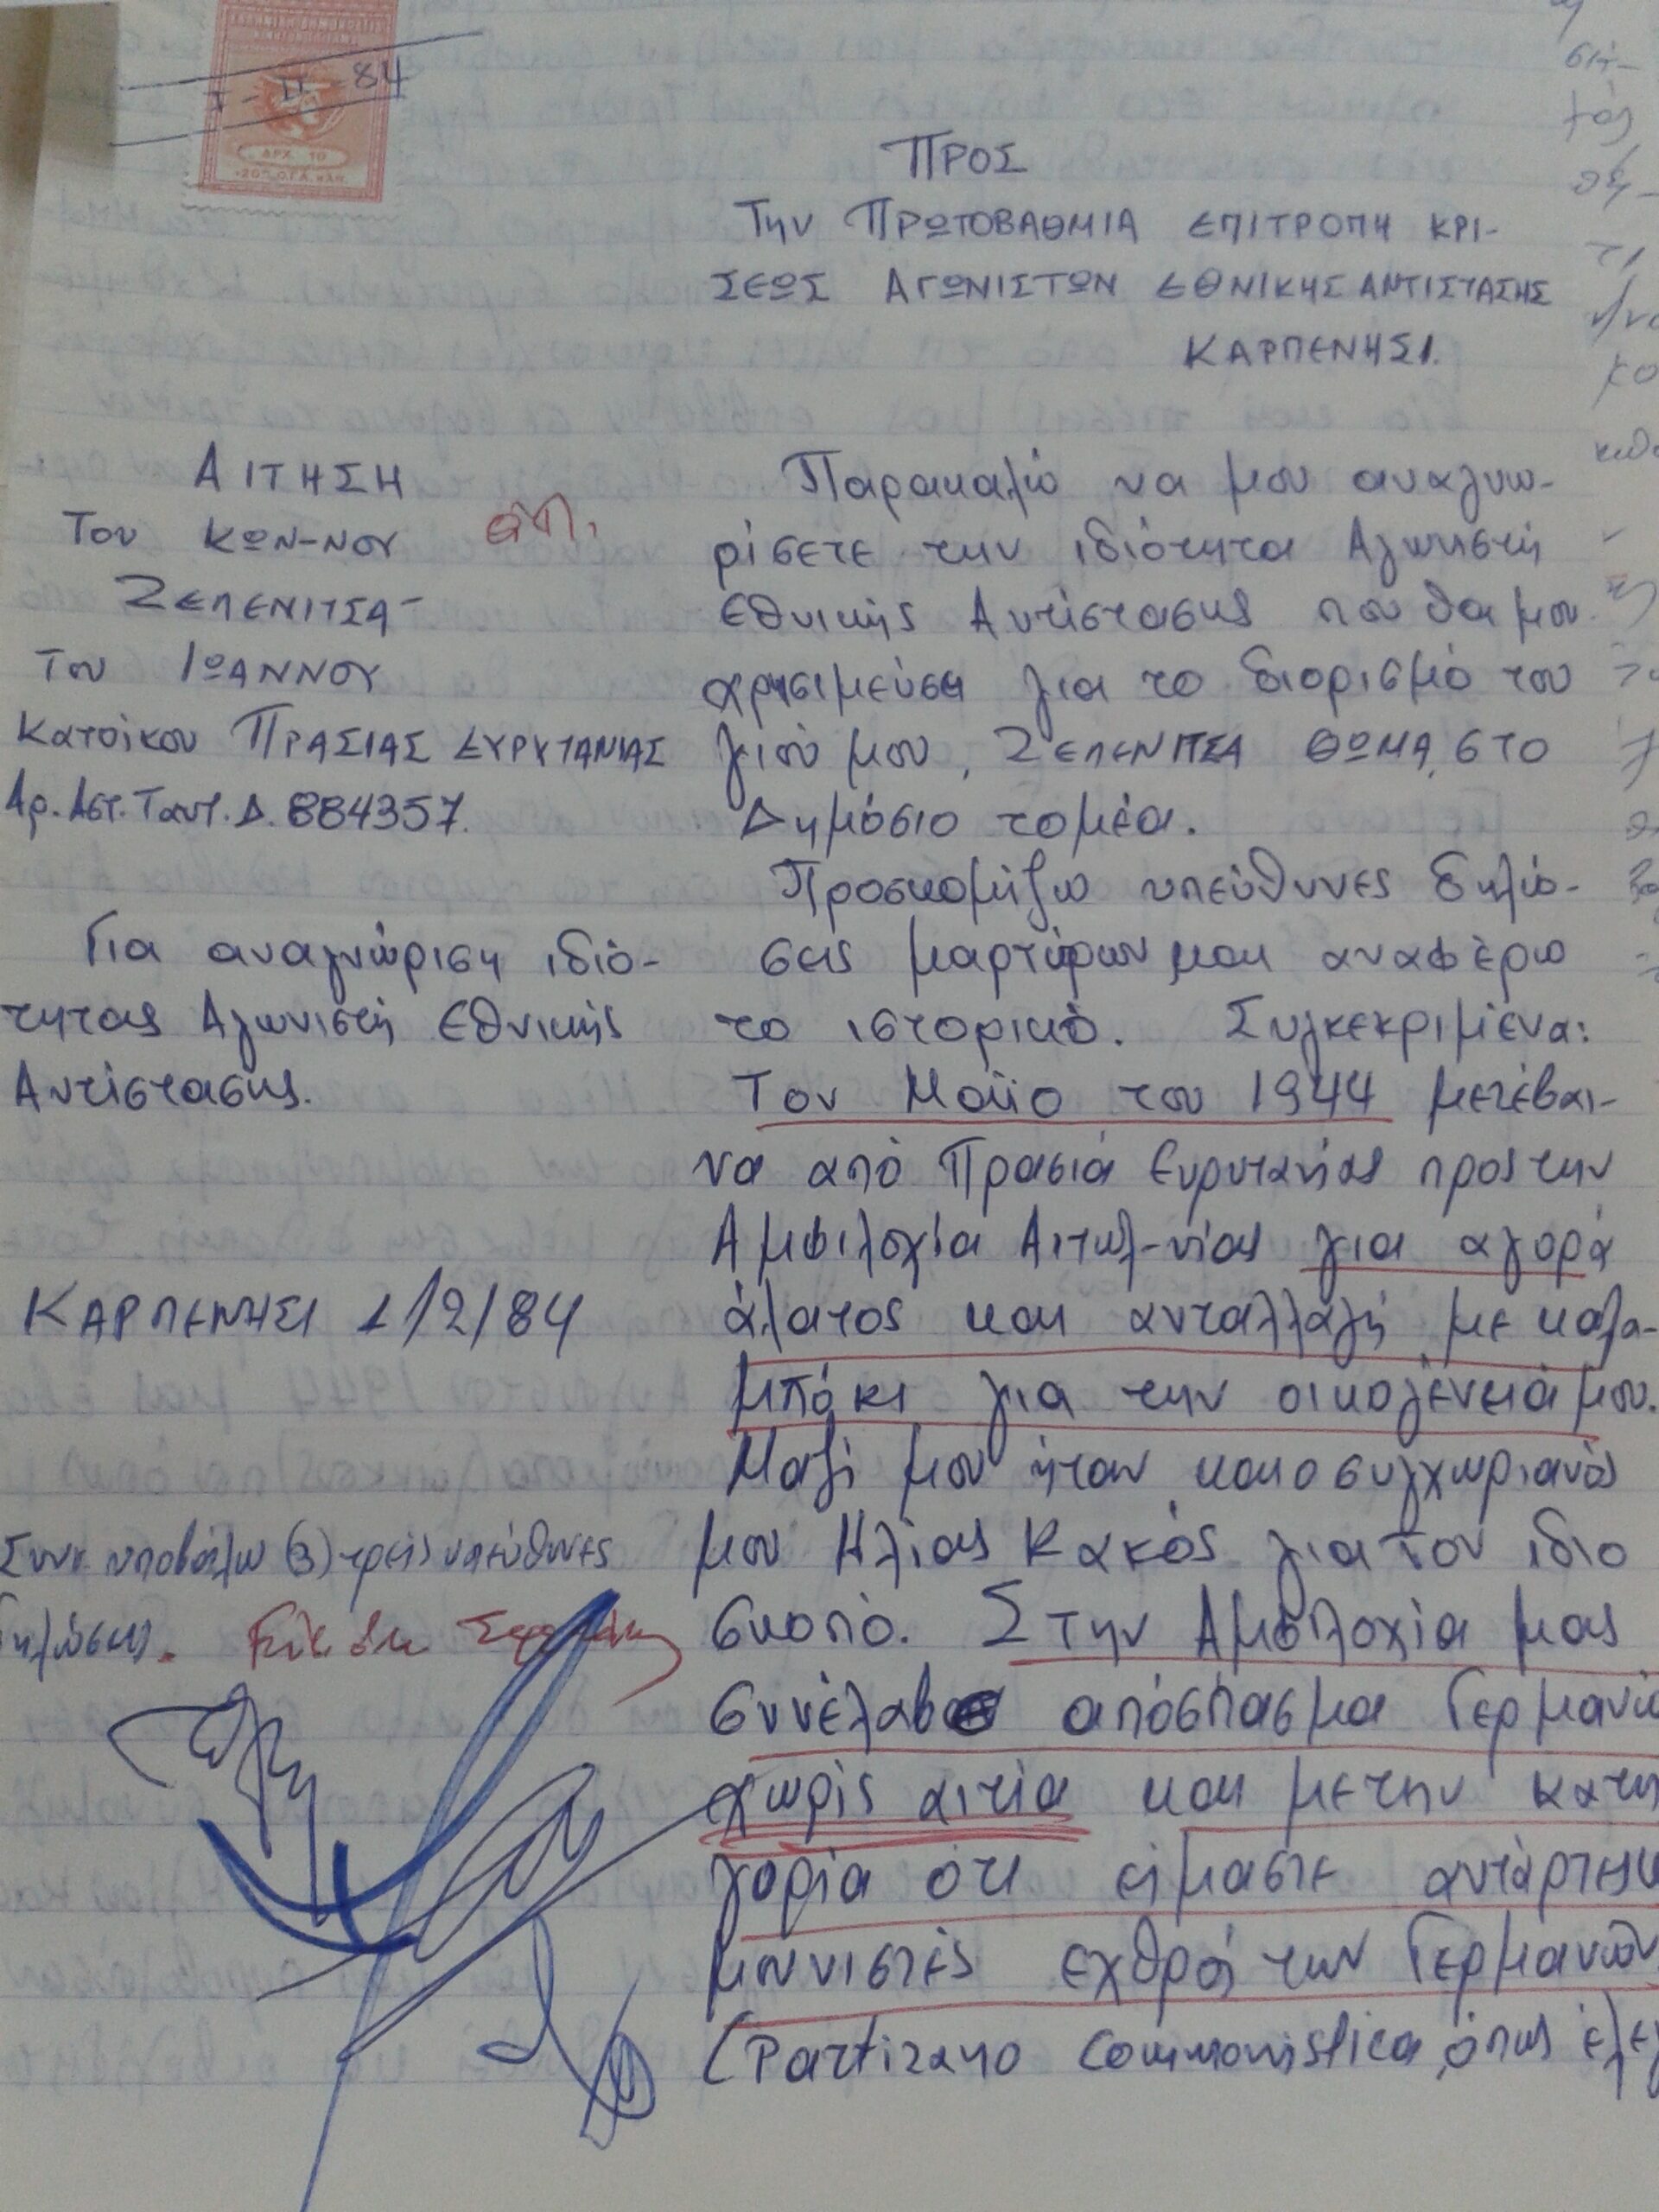 84
ΔΡΧ. 10
ΠΡΟΣ
Την ΠΡΩΤΟΒΑΘΜΙΑ ΕΠΙΤΡΟΠΗ ΚΡΙ-
ΣΕΩΣ ΑΓΩΝΙΣΤΩΝ ΕΘΝΙΚΗΣ ΑΝΤΙΣΤΑΣΗΣ
ΚΑΡΠΕΝΗΣΙ.
ΑΙΤΗΣΗ
Του ΚΩΝ-ΝΟΥ
ΖΕΠΕΝΙΤΣΑ-
Του ΙΩΑΝΝΟΥ
Κατοίκου ΠΡΑΣΙΑΣ ΕΥΡΥΤΑΝΙΑΣ
Αρ. Αστ. Ταυτ. Δ. 884357.
Για αναγνώριση ιδιό-
τητας Αγωνιστή Εθνικής
Αντίστασης.
ΚΑΡΠΕΝΗΣΙ 1/2/84
Συνυποβάλω (3) τρείς υπεύθυνες
δηλώσεις.
Παρακαλώ να μου αναγνω-
ρίσετε την ιδιότητα Αγωνιστή
Εθνικής Αντίστασης που θα μου
χρησιμεύσει για το διορισμό του
γιού μου, ΖΕΠΕΝΙΤΣΑ ΘΩΜΑ, στο
Δημόσιο τομέα.
Προσκομίζω υπεύθυνες δηλώ-
σεις μαρτύρων και αναφέρω
το ιστορικό. Συγκεκριμένα:
Τον Μαϊο του 1944 μετέβαι-
να από Πρασιά Ευρυτανίας προς την
Αμφιλοχία Αιτωλ-νίας για αγορά
άλατος και ανταλλαγή με καλα-
μπόκι για την οικογένειά μου.
Μαζί μου ήταν και ο συγχωριανός
μου Ηλίας Κακός για τον ιδιο
σκοπό. Στην Αμφιλοχία μας
συνέλαβε απόσπασμα Γερμανώ
χωρίς αιτία και με την κατη
γορία ότι είμαστε αντάρτες
μουνιστές εχθροί των Γερμανών
(Partizano Commonistica, όπως έλεγ